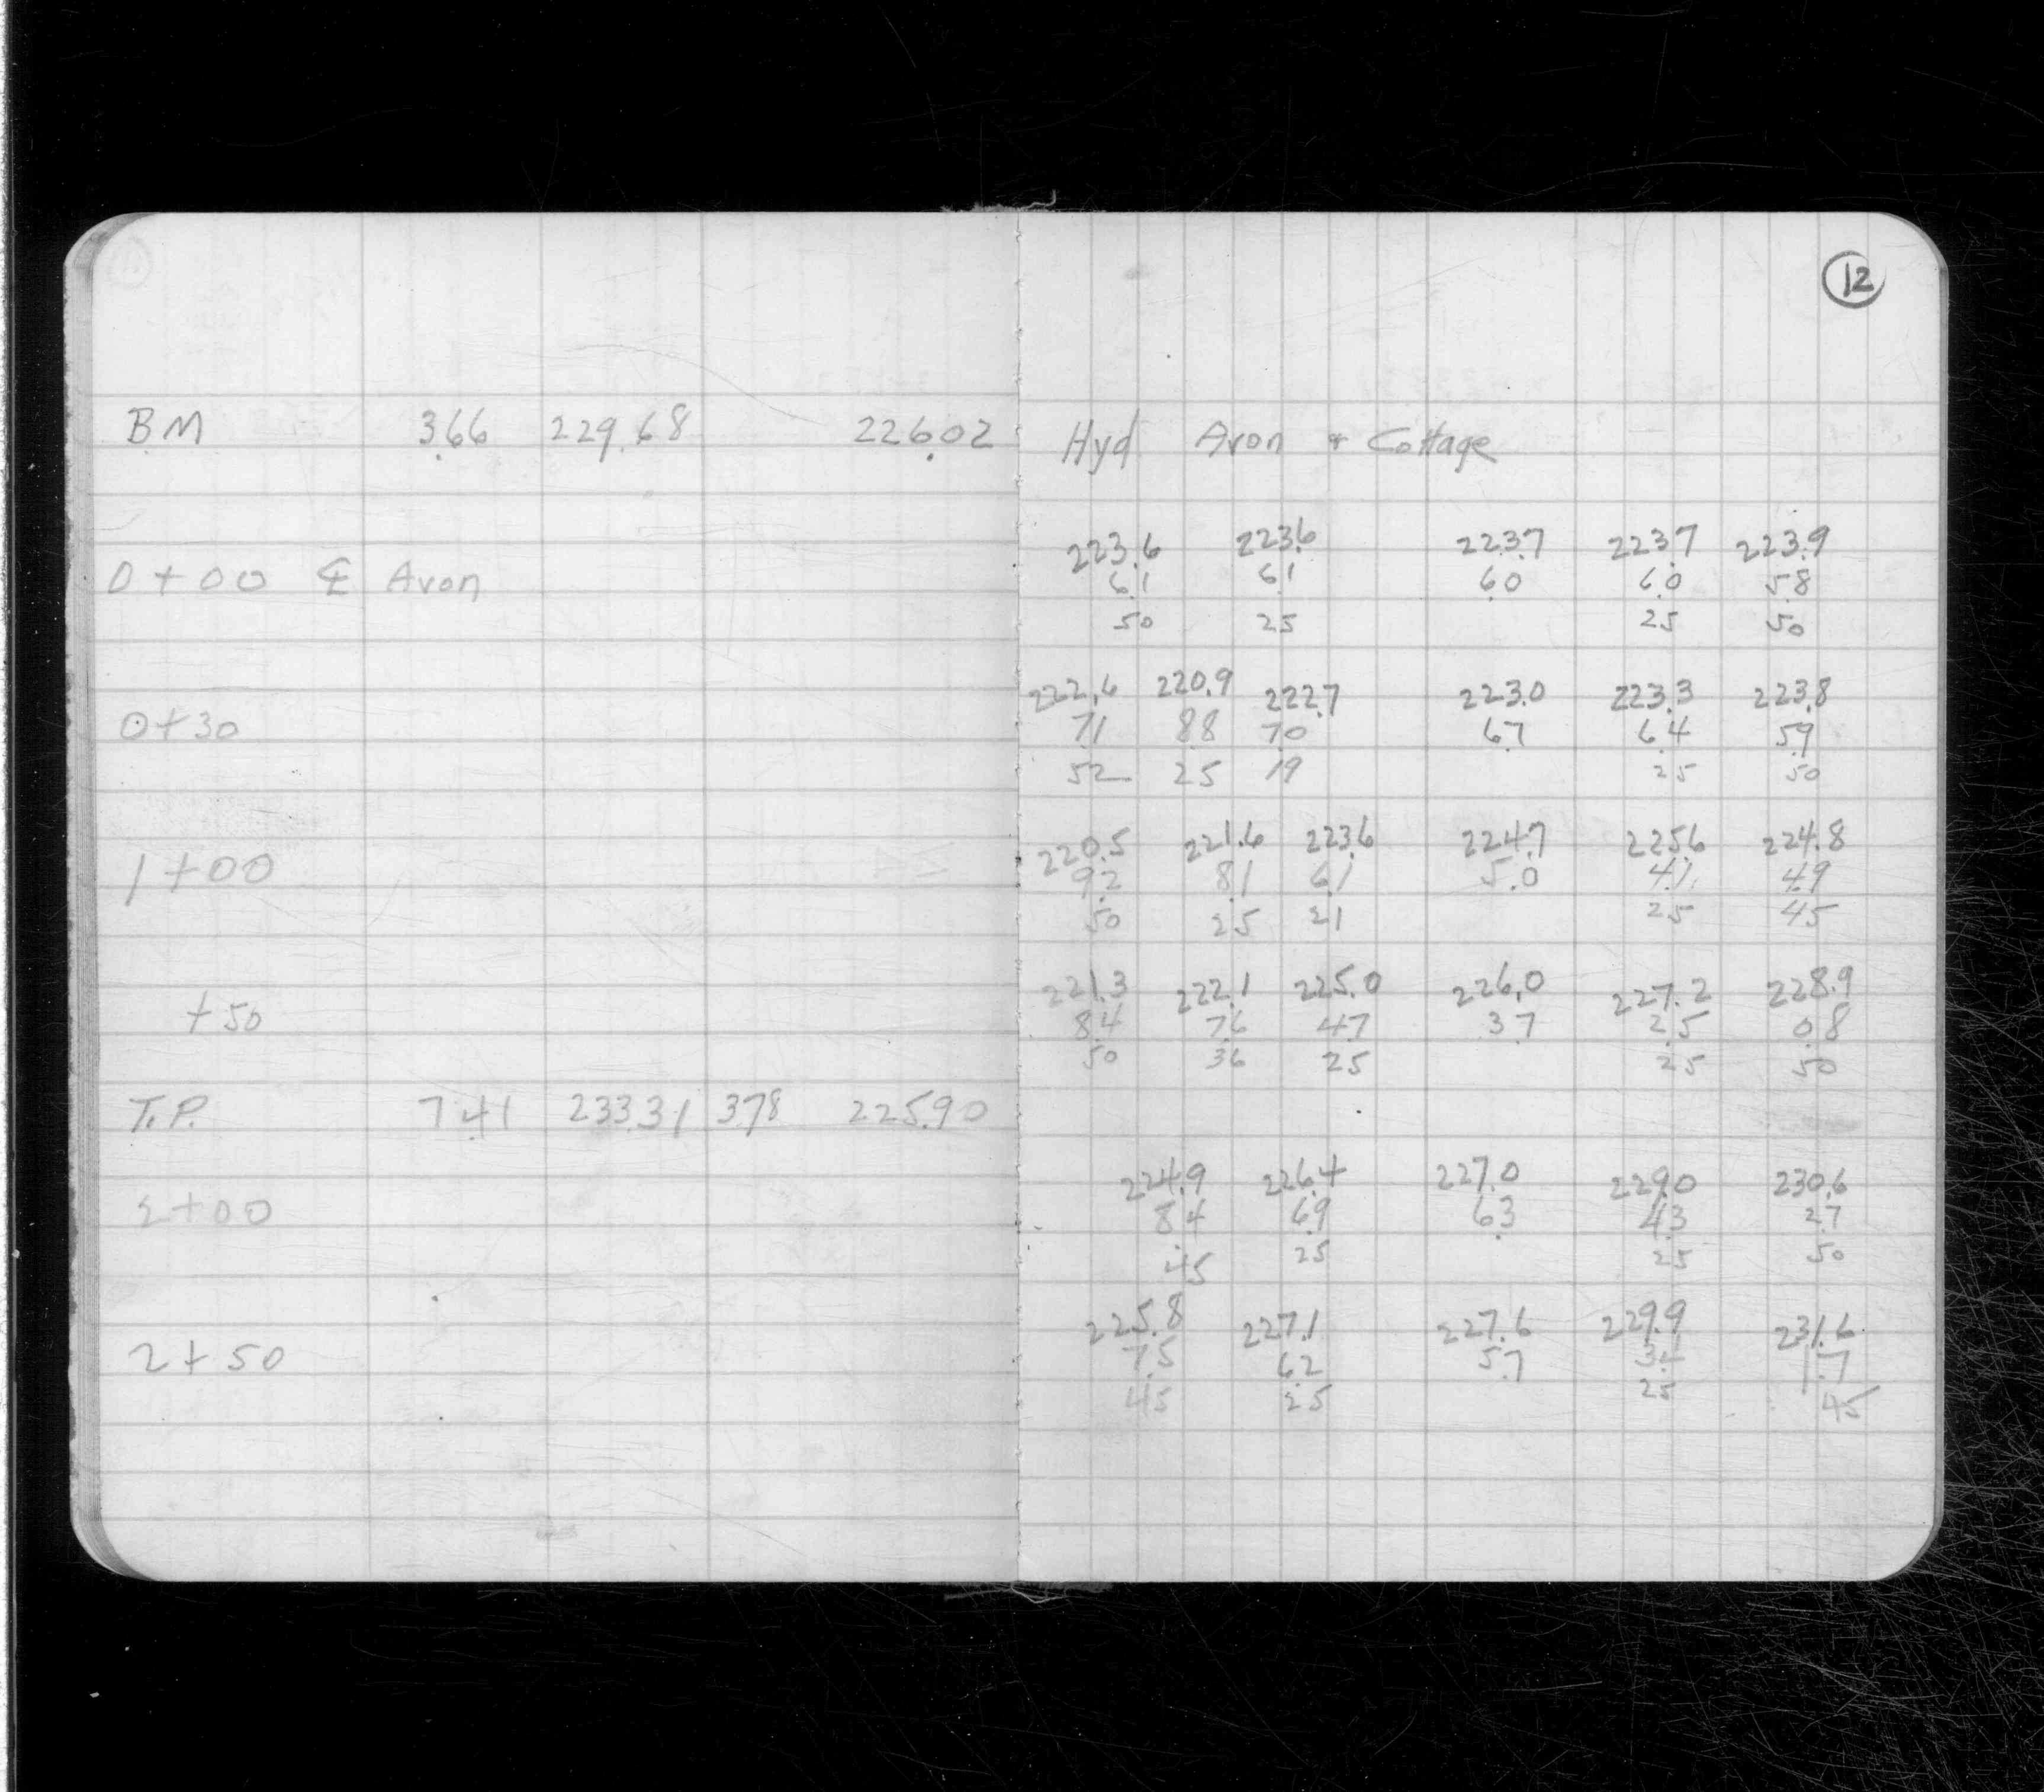 12
BM 3.66 229.68 226.02 Hyd Avon + Cottage
223.6 223.6 223.7 223.7 223.9
0+00 ℄ Avon 6.1 6.1 6.0 6.0 5.8
50 25 25 50
222.6 220.9 222.7 223.0 223.3 223.8
0+30 7.1 8.8 7.0 6.7 6.4 5.9
52 25 19 25 50
220.5 221.6 223.6 224.7 225.6 224.8
1+00 9.2 8.1 6.1 5.0 4.1 4.9
50 25 21 25 45
221.3 222.1 225.0 226.0 227.2 228.9
+50 8.4 7.6 4.7 3.7 2.5 0.8
50 36 25 25 50
T.P. 7.41 233.31 3.78 225.90
224.9 226.4 227.0 229.0 230.6
2+00 8.4 6.9 6.3 4.3 2.7
45 25 25 50
225.8 227.1 227.6 229.9 231.6
2+50 7.5 6.2 5.7 3.4 1.7
45 25 25 45